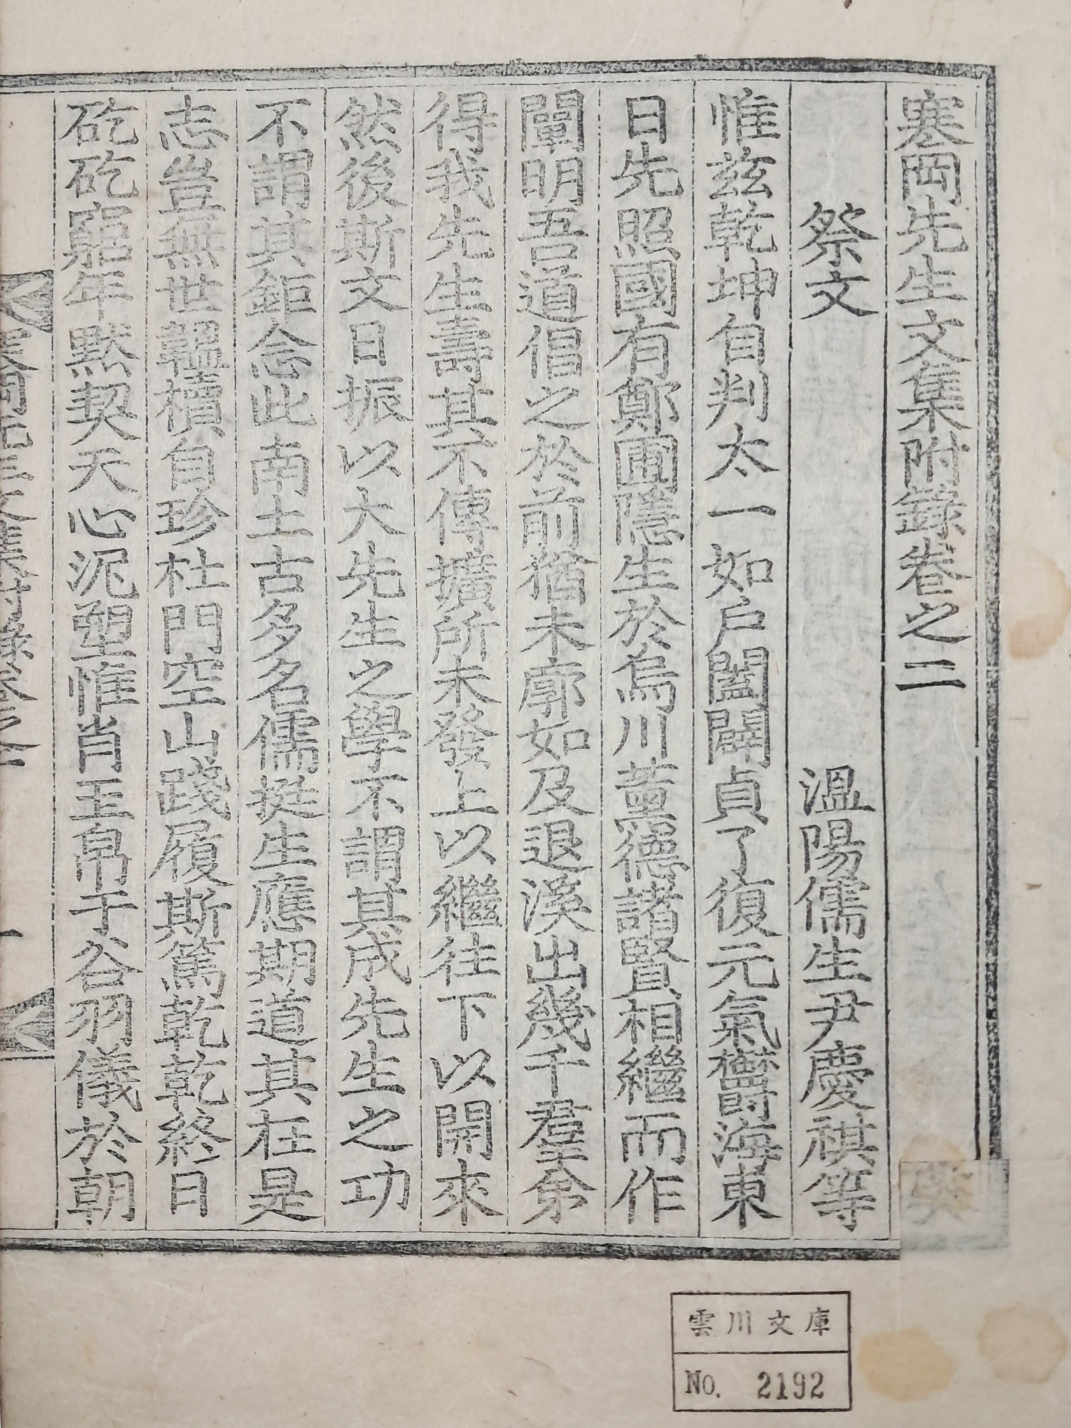 寒岡先生文集附錄卷之二
祭文 溫陽儒生尹慶祺等
惟玆乾坤自判太一如戶闔闢貞了復元氣欝海東
日先照國有鄭圃隱生於烏川薰德諸賢相繼而作
闡明吾道倡之於前猶未廓如及退溪出幾千羣金
得我先生壽其不傳擴所未發上以繼往下以開來
然後斯文日振以大先生之學不謂其成先生之功
不謂其鉅念此南土古多名儒挺生應期道其在是
志豈無世韞櫝自珍杜門空山踐履斯篤乾乾終日
矻矻窮年黙契天心泥塑惟肖玉帛于谷羽儀於朝
雲川文庫
No. 2192